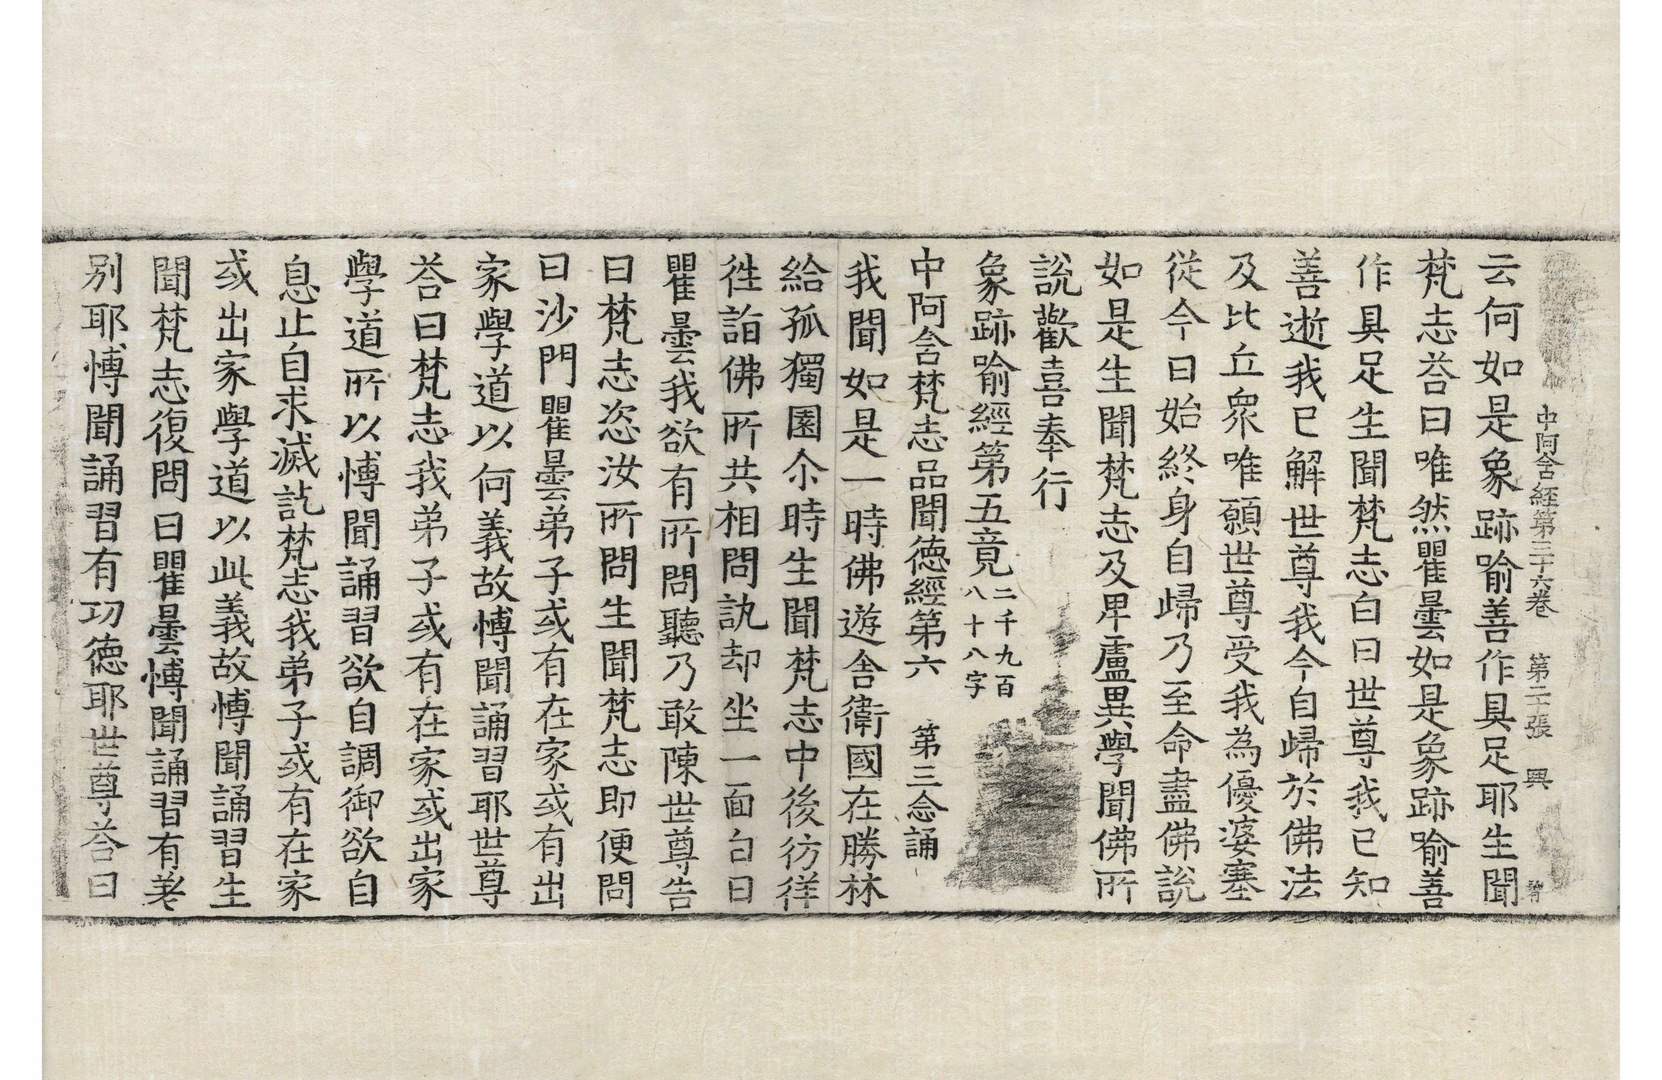 中阿含經第三十六卷　第二十張　興
云何如是象跡喻善作具足耶生聞
梵志荅曰唯然瞿曇如是象跡喻善
作具足生聞梵志白曰世尊我已知
善逝我已解世尊我今自歸於佛法
及比丘眾唯願世尊受我為優婆塞
從今日始終身自歸乃至命盡佛說
如是生聞梵志及卑盧異學聞佛所
說歡喜奉行
象跡喻經第五竟二千九百八十八字
中阿含梵志品聞德經第六　第三念誦
我聞如是一時佛遊舍衛國在勝林
給孤獨園尒時生聞梵志中後彷徉
徃詣佛所共相問訊却坐一面白曰
瞿曇我欲有所問聽乃敢陳世尊告
曰梵志恣汝所問生聞梵志即便問
曰沙門瞿曇弟子或有在家或有出
家學道以何義故博聞誦習耶世尊
荅曰梵志我弟子或有在家或出家
學道所以博聞誦習欲自調御欲自
息止自求滅訖梵志我弟子或有在家
或出家學道以此義故博聞誦習生
聞梵志復問曰瞿曇博聞誦習有差
別耶博聞誦習有功德耶世尊荅曰